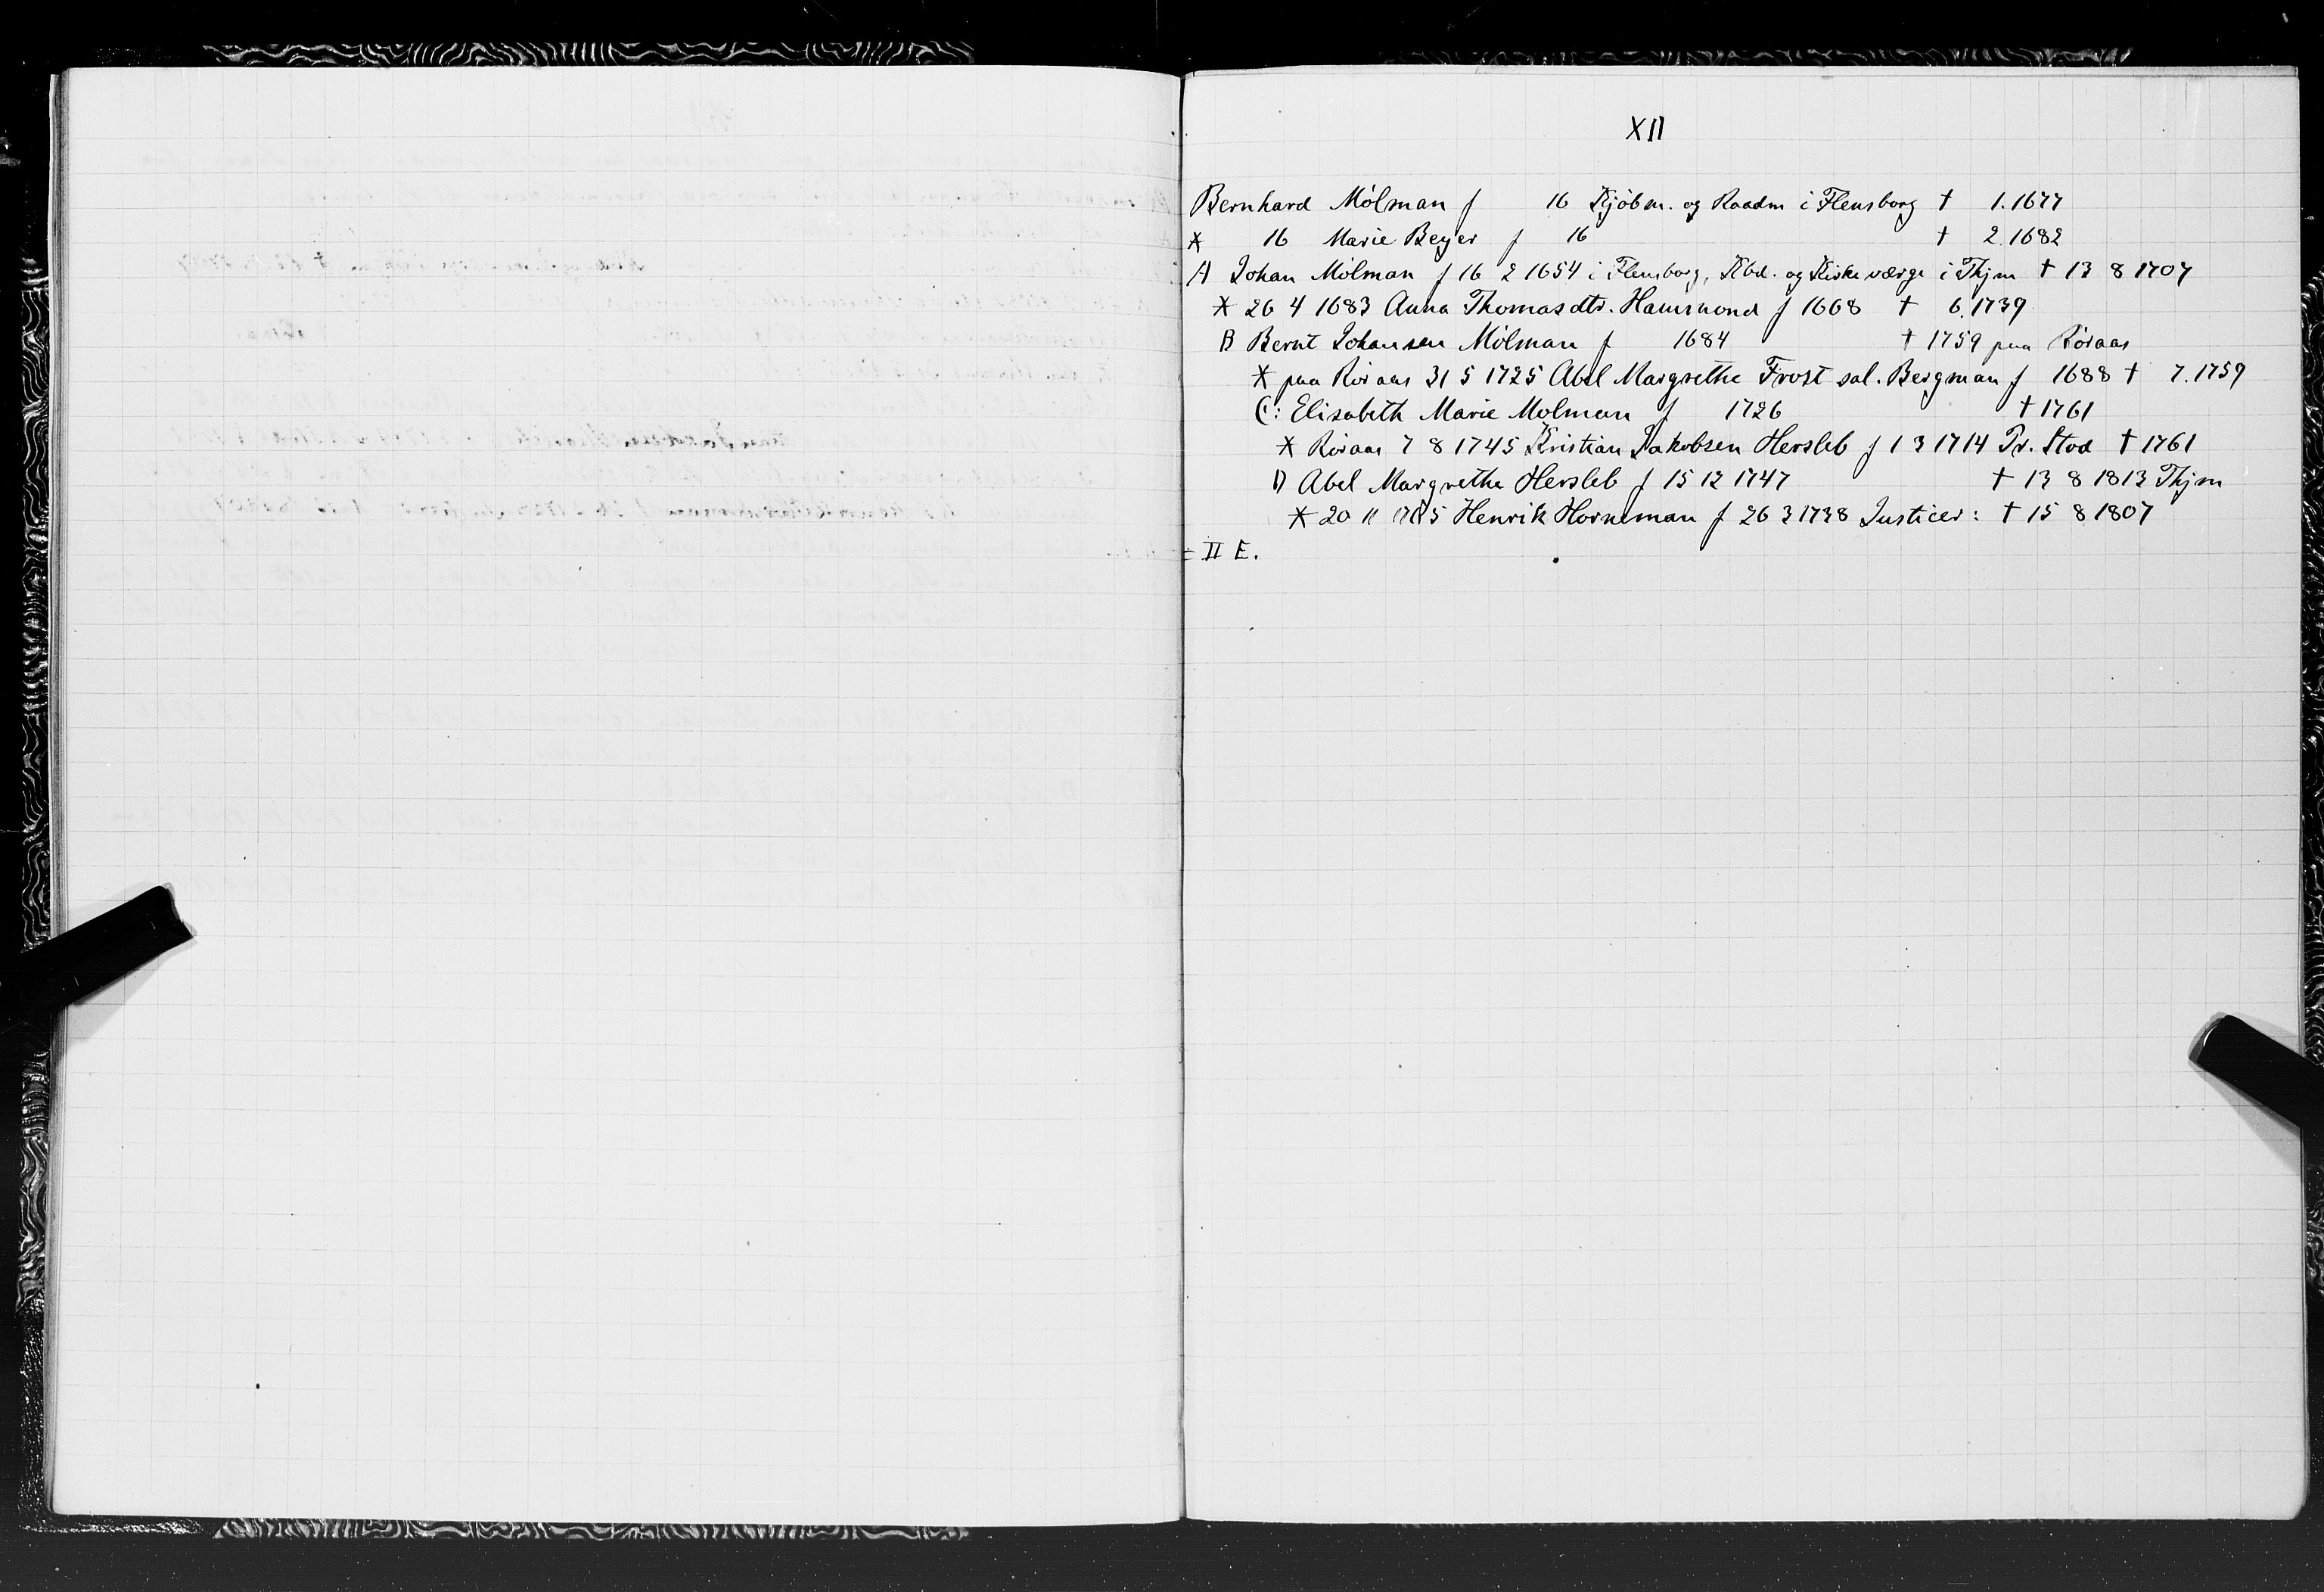 XII
Bernhard Mólman f 16 Kjöbm. og Raadm i Flensborg † 1.1677
* 16 Marie Beyer f 16 † 2.1682
A Johan Mólman f 16 2 1654 i Flensborg, Kbd. og Kirkeværge i Thjm † 13 8 1707
* 26 4 1683 Anna Thomasdtr. Hammond f 1668 † 6.1739
B Bernt Johansen Mólman f 1684 † 1759 paa Röraas
* paa Röraas 31 5 1725 Abel Margrethe Frost sal. Bergman f 1688 † 7.1759
C: Elisabeth Marie Molman f 1726 † 1761
* Röraas 7 8 1745 Kristian Jakobsen Hersleb f 1 3 1714 Pr. Stod † 1761
D Abel Margrethe Hersleb f 15 12 1747 † 13 8 1813 Thjm
* 20 11 1765 Henrik Horneman f 26 3 1738 Justicer: † 15 8 1807
= II E.